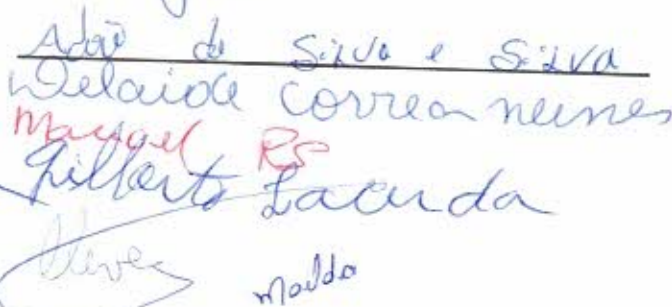 Adão da Silva e Silva
Delaide Correa nunes
Manoel RS
Gilberto Lacerda